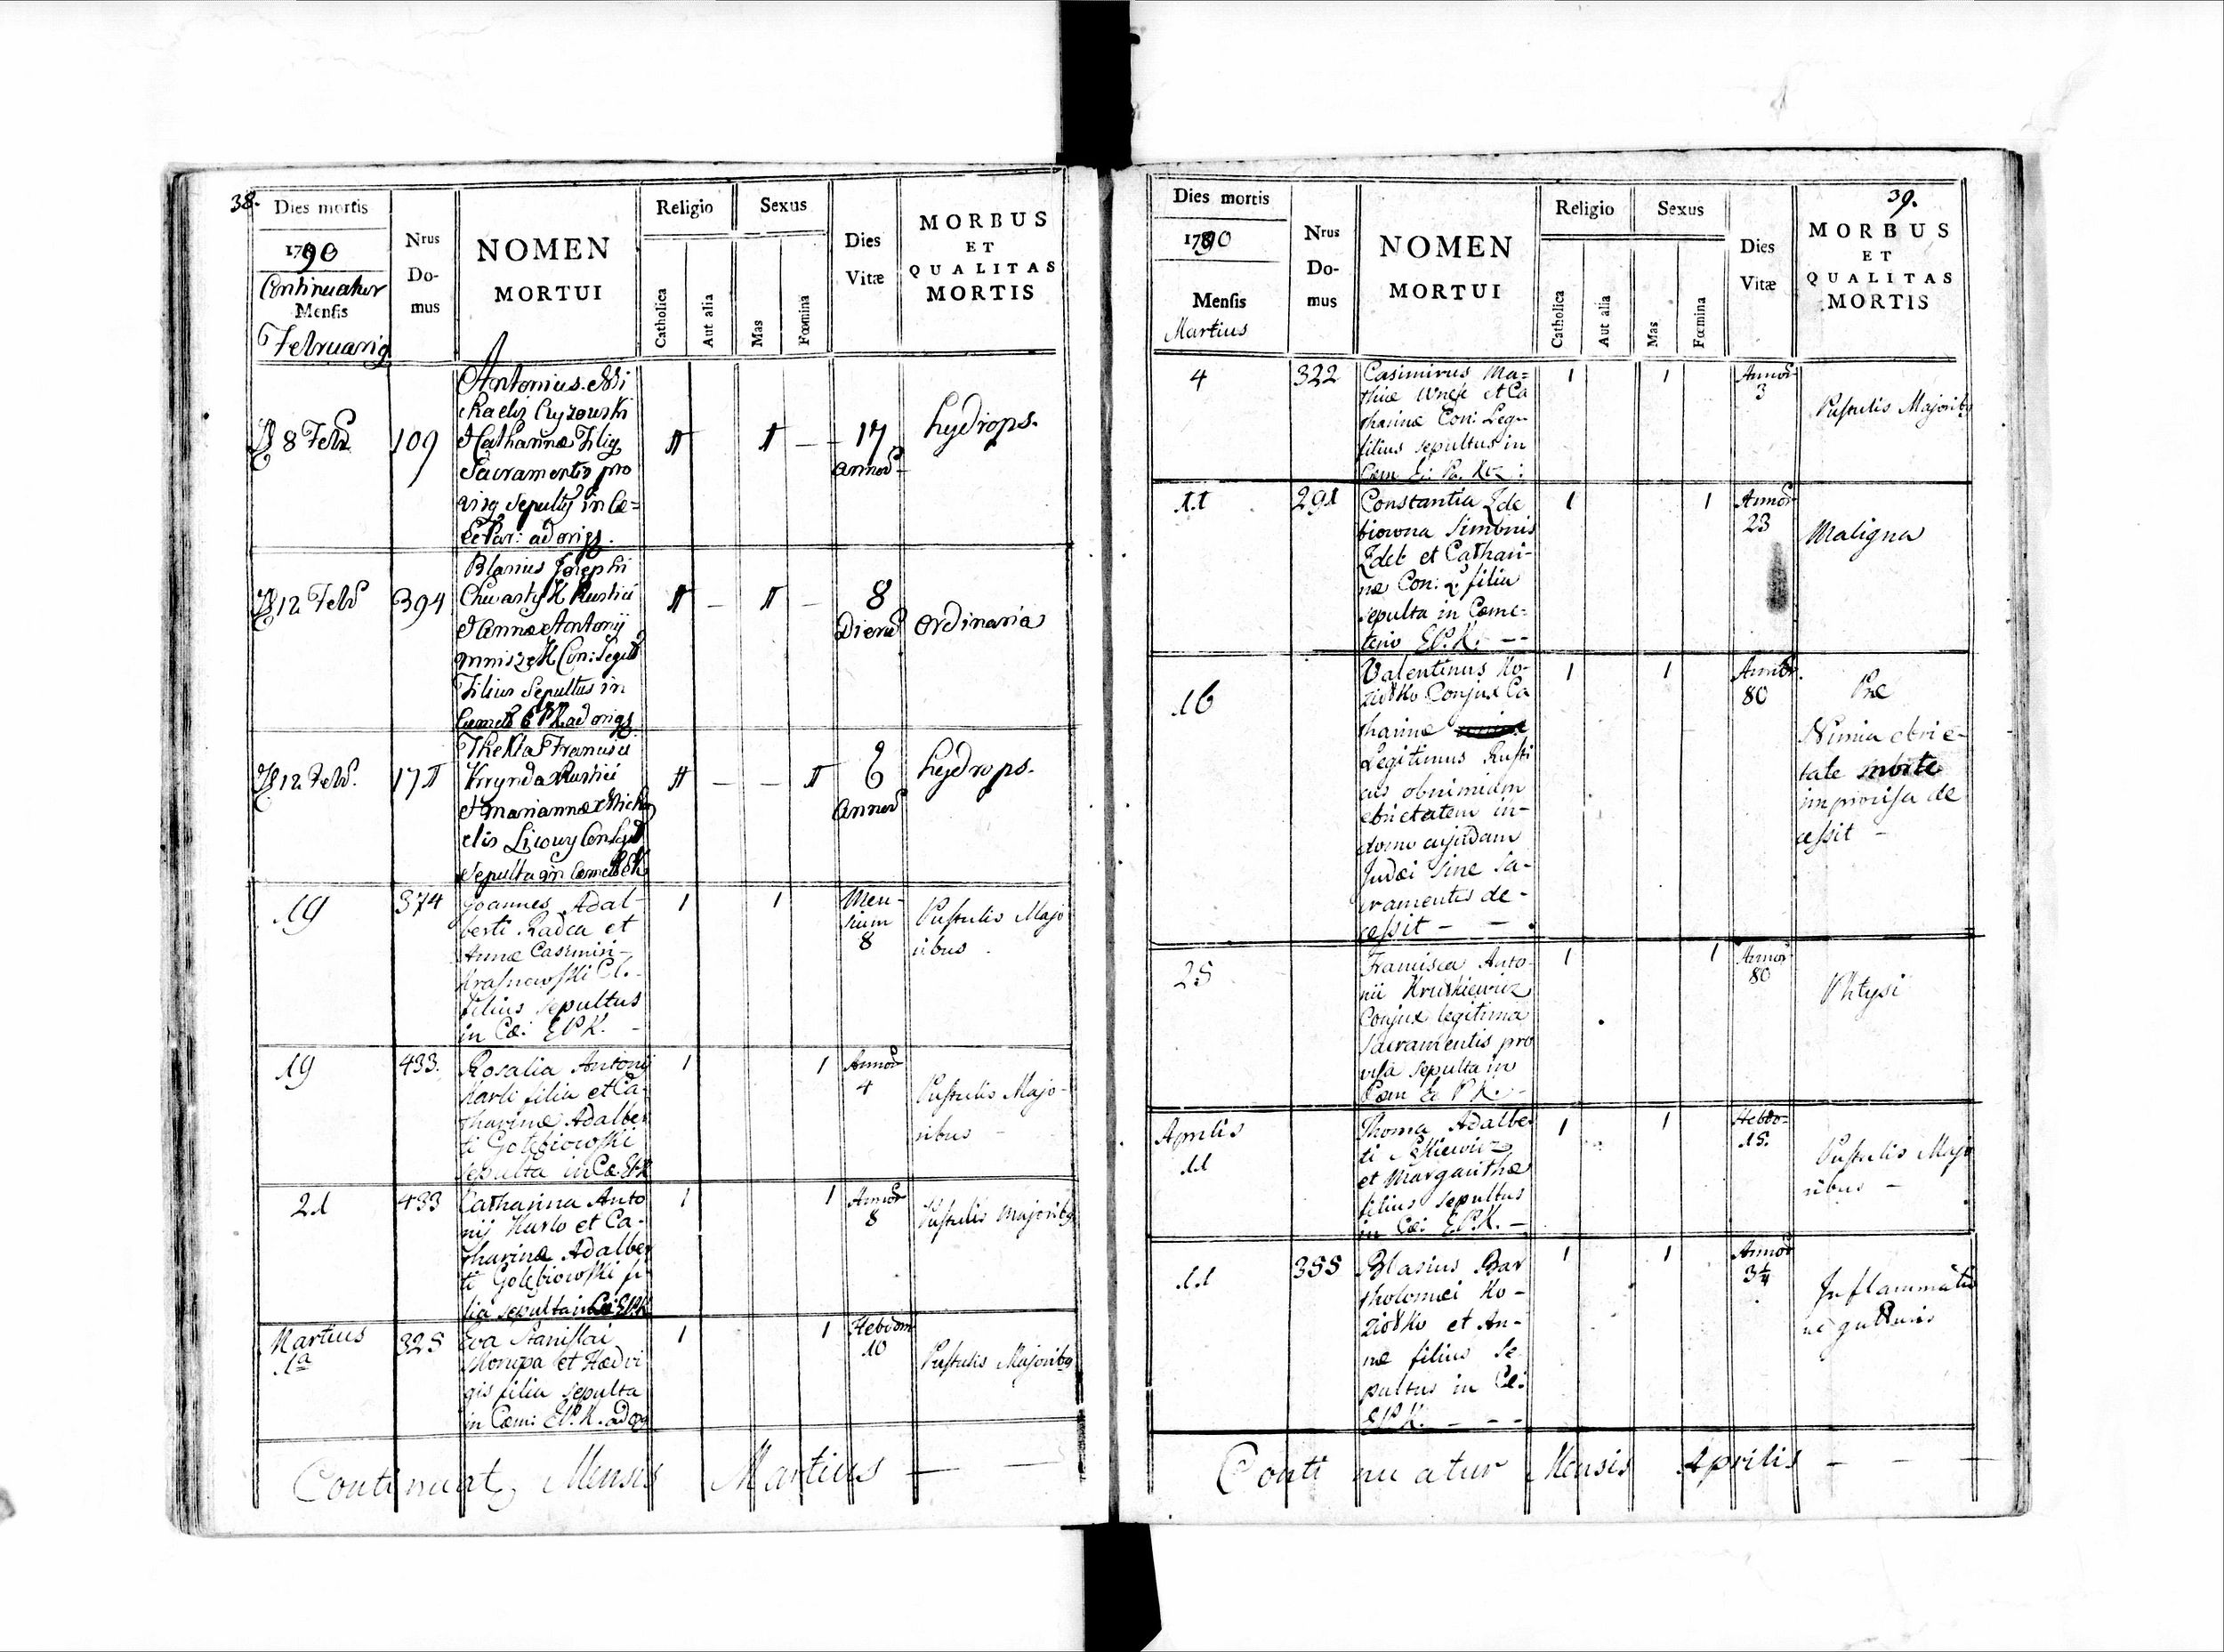 38.
Dies mortis
1790
Continuatur
Mensis
Februarig
Nrus
Do-
mus
NOMEN
MORTUI
Religio
Catholica
Aut alia
Sexus
Mas
Fœmina
Dies
Vitæ
MORBUS
ET
QUALITAS
MORTIS
8 Febr
109
Antonius Mi
chaelis
Catharinæ Filig
Sacramentis pro
visg sepultg in Cæ=
E Par: ad origs.
1
1 —
17
annor
hydrops.
12 Febr
394
Blasius Josephi
Chwastyk Rustici
et Annæ Antonij
Con: Legit
Filius Sepultus in
ad origs
1 —
1 —
8
Dierū
ordinaria
12 Febr.
171
Thekla Francisci
Krynda Rustici
et Mariannæ Micha
elis
Sepulta in
1 —
— 1
6
annor
hydrops.
19
374
Joannes Adal-
berti Radca et
Annæ Casimiri
Krasnowski Cl.
filius sepultus
in Cæ: E P K. -
1
1
Men-
sium
8
Pustulis Majo
ribus
19
433.
Rosalia Antonij
Karli filia et Ca-
tharinæ Adalber
ti Gołębiowski
sepulta in Cæ. EPK
1
1
Annor
4
Pustulis Majo-
ribus -
21
433
Catharina Anto
nij Karlo et Ca-
tharinæ Adalber
ti Gołębiowski fi-
lia sepulta in Cæ EPK
1
1
Annor
8
Pustulis Majoribg
Martius
1a
325
Eva Stanislai
et Hedvi
gis filia sepulta
in Cæm: E P. K. ad
1
1
Hebdom
10
Pustulis Majoribg
Continuat Mensis Martius — —
39.
Dies mortis
1790
Mensis
Martius
Nrus
Do-
mus
NOMEN
MORTUI
Religio
Catholica
Aut alia
Sexus
Mas
Fœmina
Dies
Vitæ
MORBUS
ET
QUALITAS
MORTIS
4
322
Casimirus Ma=
thiæ et Ca
tharinæ Con: Leg-
filius sepultus in
Cæm E: Pa. Koz:
1
1
Annor
3
Pustulis Majoribg
11
291
Constantia Zde
biowna Simonis
Zdeb et Cathari-
næ Con: L: filia
sepulta in Cæme-
terio E P. K. - -
1
1
Annor
23
Maligna
16
Valentinus Ko-
ziołko Conjux Ca
tharinæ
Legitimus Rusti
cus ob nimiam
ebrietatem in-
domo cujusdam
Judæi sine Sa-
cramentis de-
cessit - -
1
1
Annor
80
Præ
Nimia ebrie-
tate morte
improvisa de
cessit -
25
Francisca Anto-
nii Krutkiewicz
Conjux legitima
Sacramentis pro
visa sepulta in
Cæm E P K. -
1
1
Annor
80
Phtysi
Aprilis
11
Thoma Adalber
ti
et Margarithæ
filius sepultus
in Cæ: E P. K. -
1
1
Hebdo-
15.
Pustulis Majo
ribus -
11
355
Blasius Bar
tholomæi Ko-
ziołko et An-
næ filius Se
pultus in Cæ:
E P. K. - - -
1
1
Annor
3¼
Inflammatio
ne gutturis
Continuatur Mensis Aprilis - - -